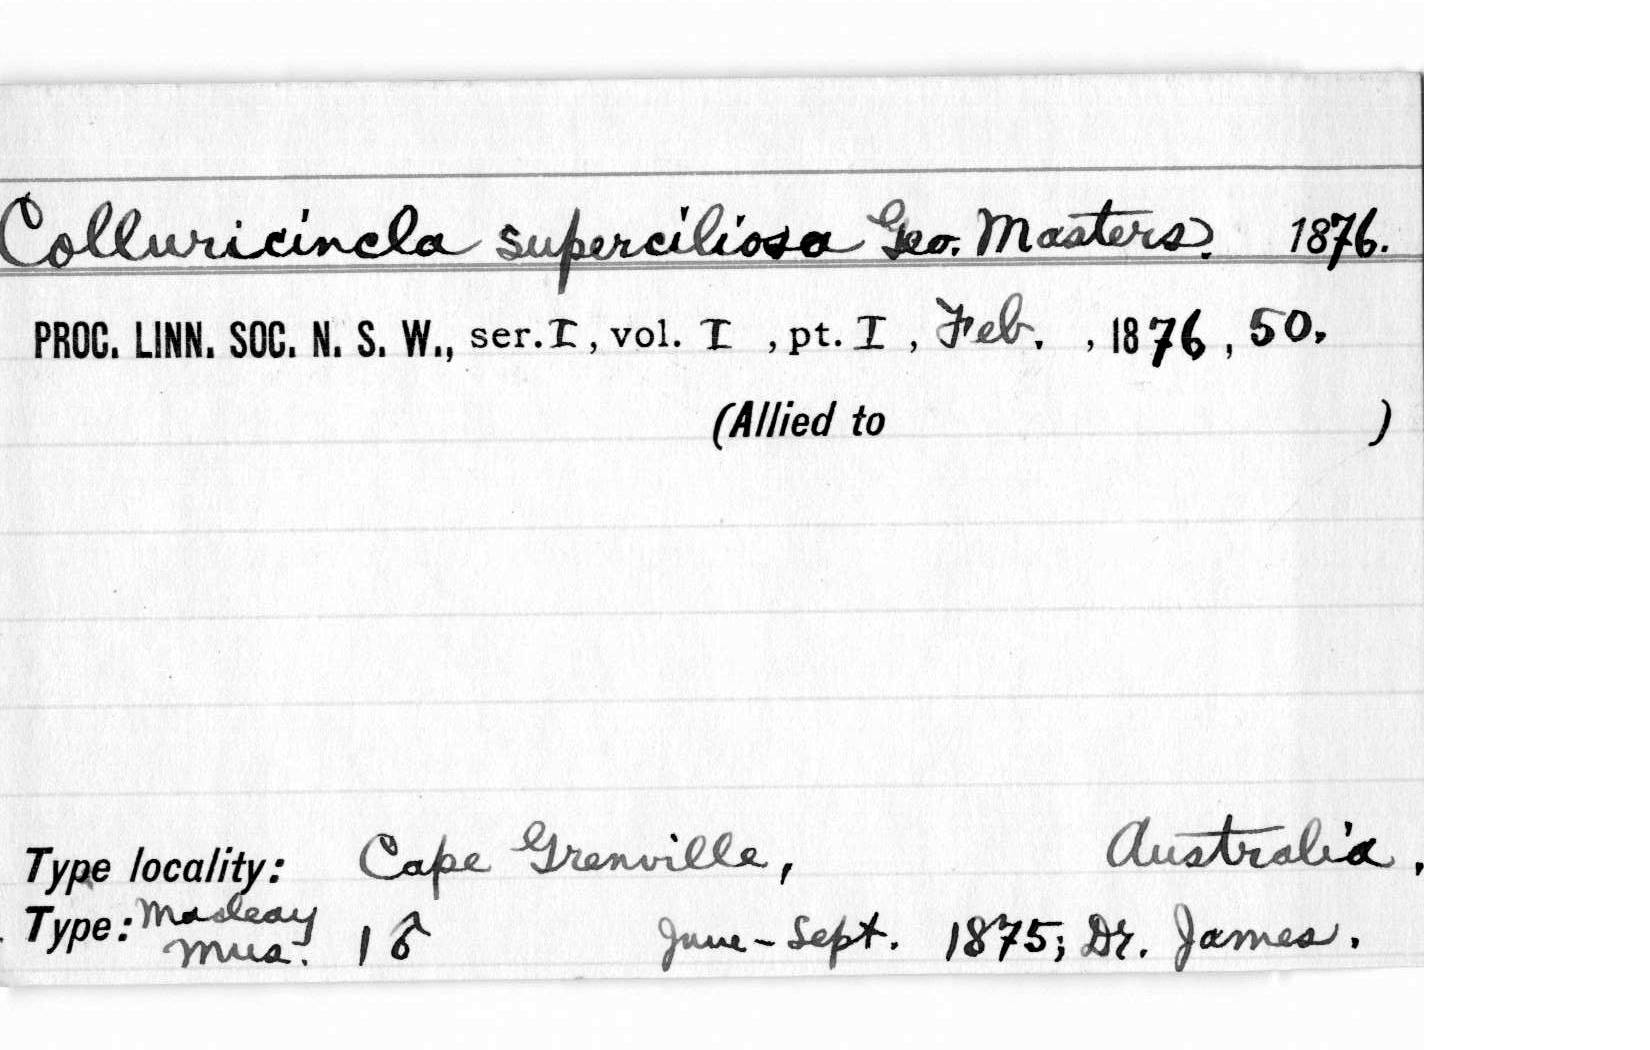 Colluricincla superciliosa Geo. Masters. 1876.
PROC. LINN. SOC. N. S. W., ser. I, vol. I , pt. I , Feb. , 1876, 50.
(Allied to )
Type locality: Cape Grenville, Australia,
Type: Macleay Mus. 1 ♂ June-Sept. 1875; Dr. James.